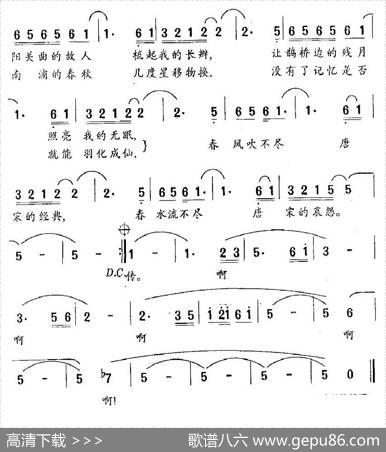 6 5 6 5 6 5 6 1 1· 6 1 3 2 1 2 2 2· 5 6 5 6 5 6 5 6 1
阳关曲的故人 梳起我的长辫, 让鹊桥边的残月
南浦的春秋 几度星移物换, 没有了记忆是否
1· 6 1 3 2 1 2 2 2· 5 6 5 6 1· 1· 6 1
照亮 我的无眠, 春 风吹不尽 唐
就能 羽化成仙,
3 2 1 2 2 2· 5 6 5 6 1· 1· 6 1 3 2 1 5 5 5
宋的经典, 春 水流不尽 唐 宋的哀怨。
5 - 5 - :‖ 1 - 1· 2 3 5· 6 1 3 -
D.C. 传。 啊
3· 5 6 2 - 2· 3 5 1 2 1 6 1 5 - 5 -
啊 啊 啊
5 - 5 - ♭7 - 5 - 5 - 5 - 5 0
啊!
高清下载 >>> 歌谱八六 www.gepu86.com